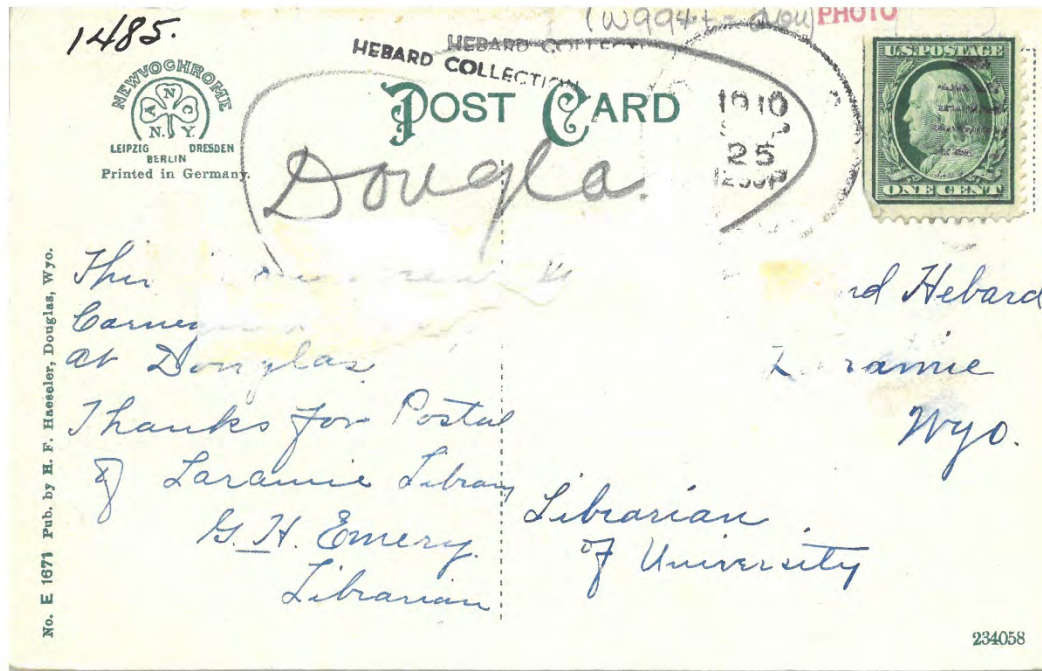 1485.
(W994t-
PHOTO
HEBARD
HEBARD COLLECTION
NEWVOCHROME
A N C
N. Y.
LEIPZIG DRESDEN
BERLIN
Printed in Germany.
POST CARD
1910
25
U.S.POSTAGE
ONE CENT
Dougla.
No. E 1671 Pub. by H. F. Haeseler, Douglas, Wyo.
at Douglas
Thanks for Postal
of Laramie Library
G. H. Emery.
Librarian
Hebard
Laramie
Wyo.
Librarian
of University
234058